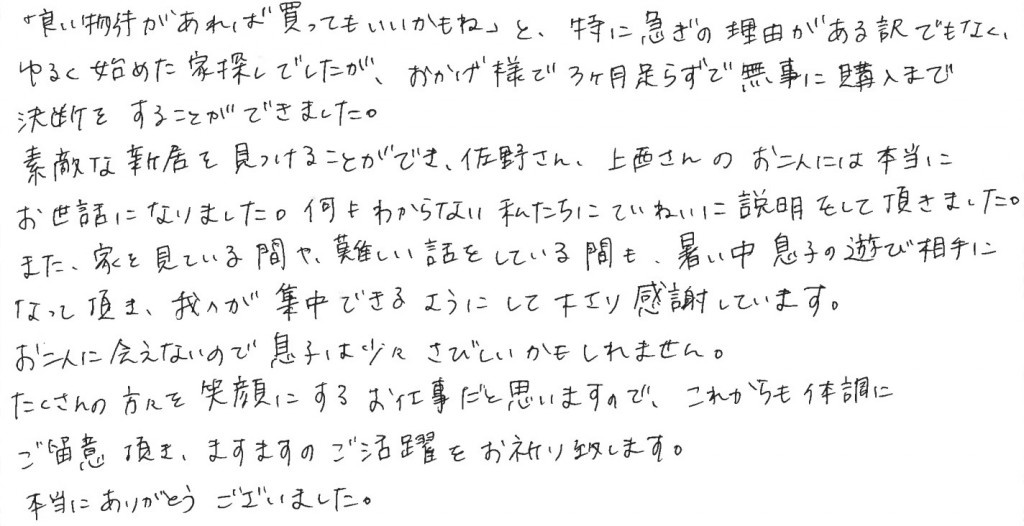 「良い物件があれば買ってもいいかもね」と、特に急ぎの理由がある訳でもなく、
ゆるく始めた家探しでしたが、おかげ様で3ヶ月足らずで無事に購入まで
決断をすることができました。
素敵な新居を見つけることができ、佐野さん、上西さんのお二人には本当に
お世話になりました。何もわからない私たちにていねいに説明をして頂きました。
また、家を見ている間や、難しい話をしている間も、暑い中息子の遊び相手に
なって頂き、我々が集中できるようにして下さり感謝しています。
お二人に会えないので息子は少々さびしいかもしれません。
たくさんの方々を笑顔にするお仕事だと思いますので、これからも体調に
ご留意頂き、ますますのご活躍をお祈り致します。
本当にありがとうございました。